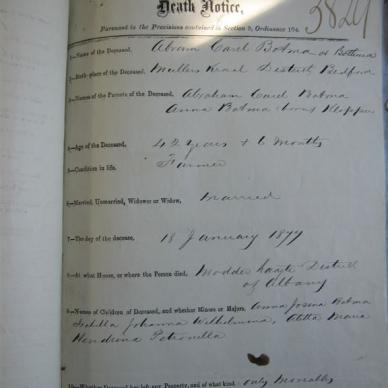 Death Notice,
Pursuant to the Provisions contained in Section 9, Ordinance 104.
1—Name of the Deceased. Abram Carel Botma or Bothma
2—Birth-place of the Deceased. Mullers Kraal District Bedford
3—Names of the Parents of the Deceased. Abraham Carel Botma
Anna Botma born Klopper
4—Age of the Deceased, 42 Years + 6 Months
5—Condition in life. Farmer
6—Married, Unmarried, Widower or Widow, Married
7—The day of the decease, 18 January 1877
8—At what House, or where the Person died, Modder District
of Albany
9—Names of Children of Deceased, and whether Minors or Majors, Anna Josina Botma
Johanna Wilhelmina, Maria
Hendrina Petronella
10—Whether Deceased has left any Property, and of what kind. only Moveables